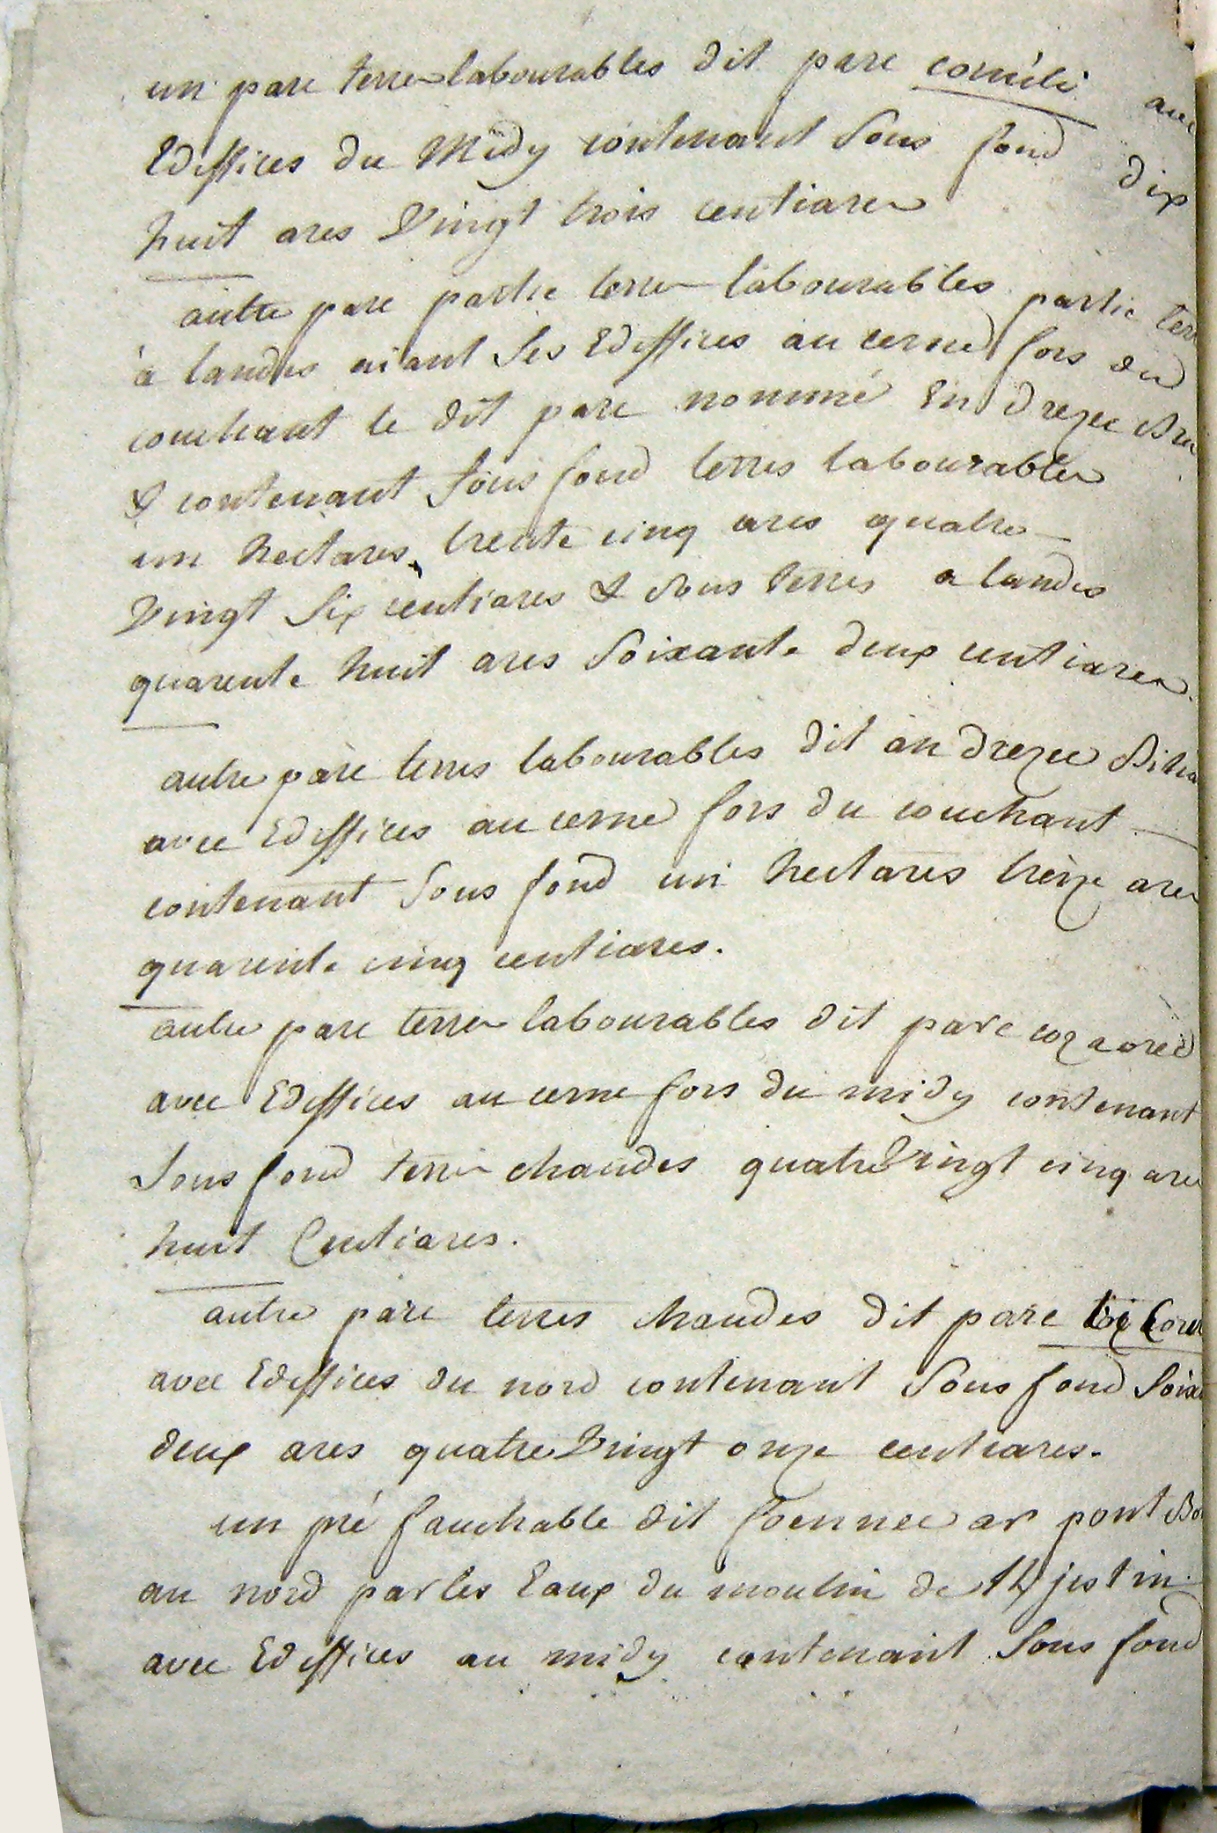 un parc terres labourables dit parc coméli avec
Ediffices du Midy contenant sous fond dix
huit ares vingt trois centiares
autre parc partie terres labourables partie terr
à landes aiant ses Ediffices au cerne fors du
couchant le dit parc nommé En drezec
& contenant sous fond terres labourables
un hectares, trente cinq ares quatre
vingt six centiares & sous terres a landes
quarente huit ares soixante deux centiares.
autre parc terres labourables dit an drezec
avec Ediffices au cerne fors du couchant
contenant sous fond un hectares treize ares
quarente cinq centiares.
autre parc terres labourables dit parc
avec Ediffices au cerne fors du midy contenant
sous fond terres chaudes quatre vingt cinq ares
huit Centiares.
autre parc terres chaudes dit parc
avec Ediffices du nord contenant sous fond soixa
deux ares quatre vingt onze centiares.
un pré fauchable dit foennec ar pont Bo
au nord par les Eaux du moulin de St justin
avec Ediffices au midy contenant sous fond